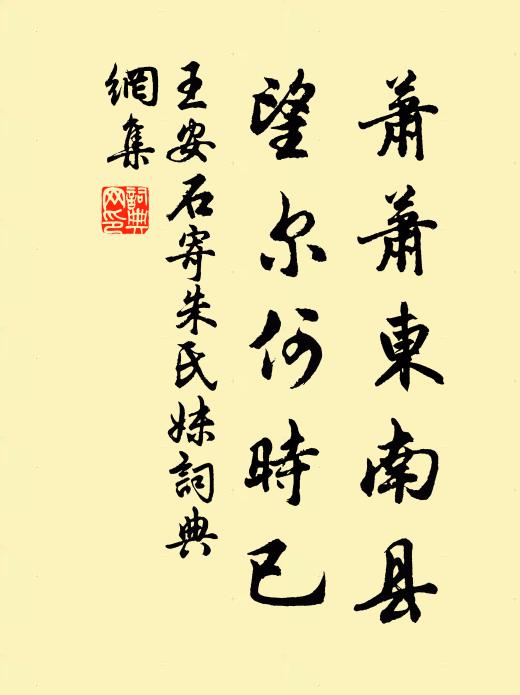 蕭蕭東南县
望尔何時已
王安石寄朱氏妹詞典
網集
詞典網印